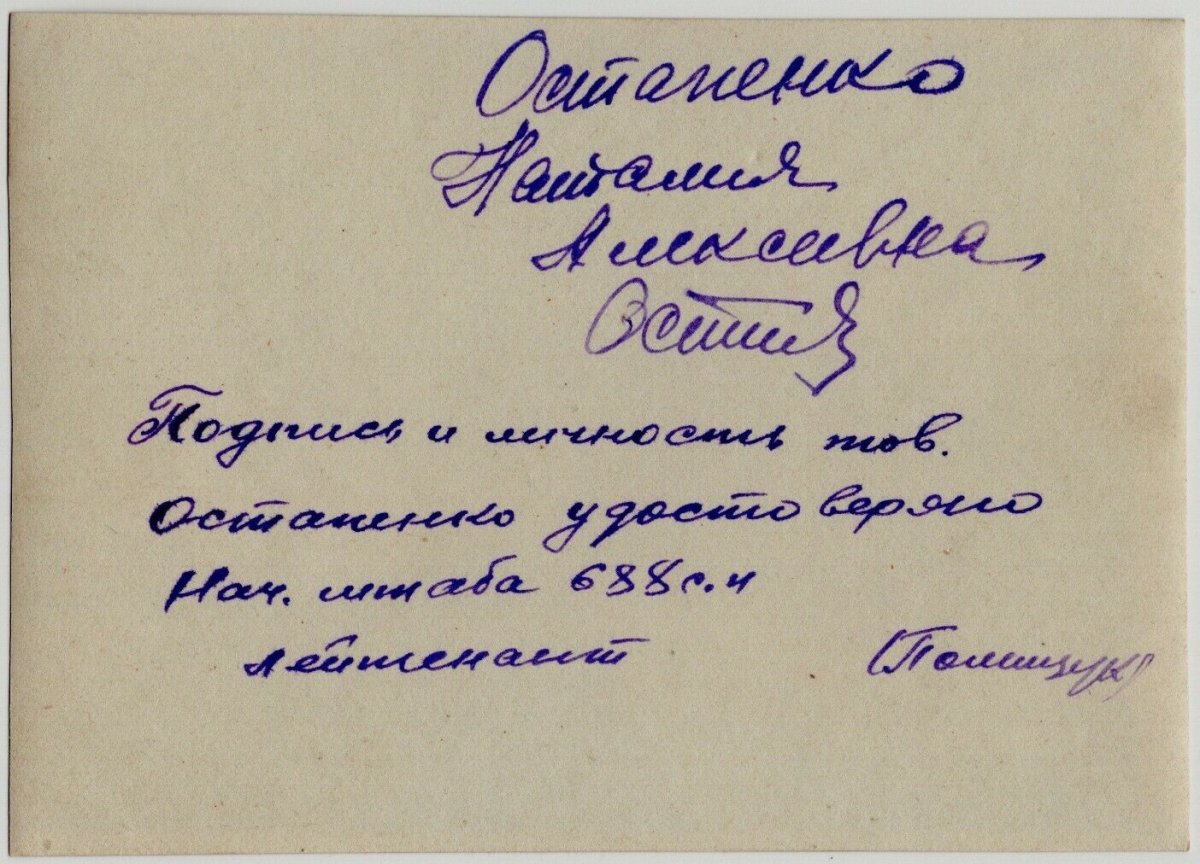 Остапенко
Наталия
Алексеевна
Подпись и личность тов.
Остапенко удостоверяю
Нач. штаба 688 с.п
лейтенант (Полищук)